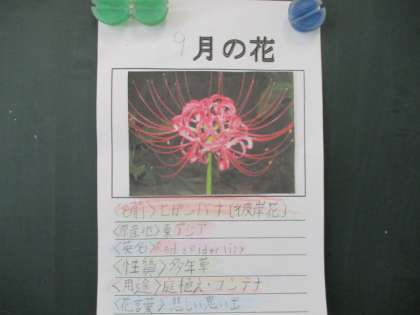 9月の花
<名前>ヒガンバナ(彼岸花)
<原産地>東アジア
<英名>Red spider lily
<性質>多年草
<用途>庭植え・コンテナ
<花言葉>悲しい思い出